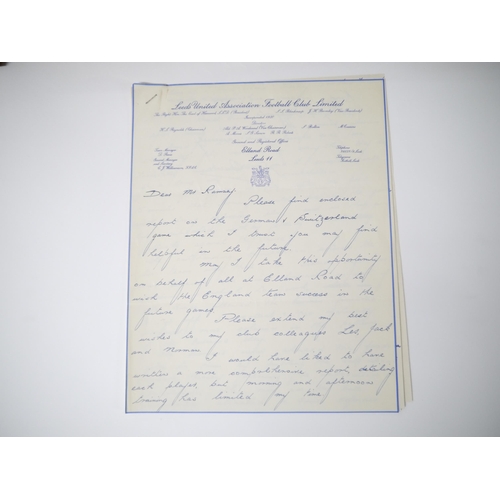 Leeds United Association Football Club Limited
Elland Road
Leeds 11
Dear Mr Ramsey
Please find enclosed
report on the German v Switzerland
game which I trust you may find
helpful in the future.
May I take this opportunity
on behalf of all at Elland Road to
wish the England team success in the
future games.
Please extend my best
wishes to my club colleagues Les, Jack
and Norman.
I would have liked to have
written a more comprehensive report, detailing
each player, but morning and afternoon
training has limited my time